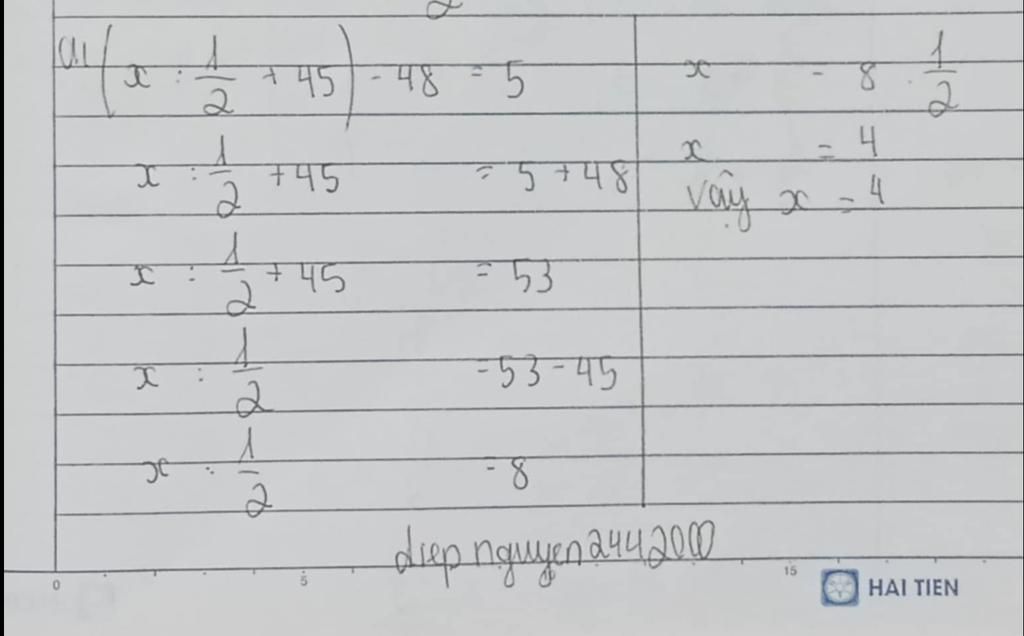 a, (x : 1/2 + 45) - 48 = 5
x : 1/2 + 45 = 5 + 48
x : 1/2 + 45 = 53
x : 1/2 = 53 - 45
x : 1/2 = 8
x = 8 . 1/2
x = 4
Vậy x = 4
diepnguyen2442000
0 5 15
HAI TIEN